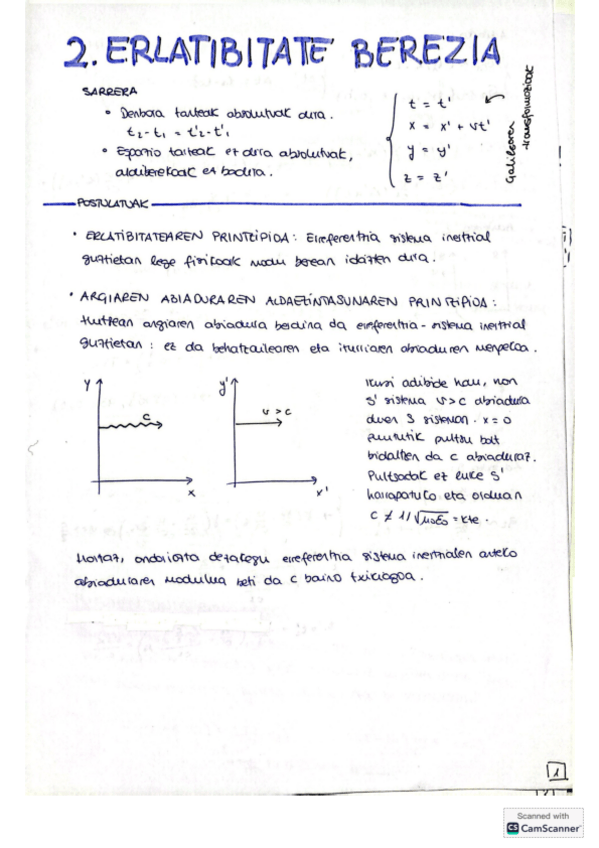 2. ERLATIBITATE BEREZIA
SARRERA
• Denbora tarteak absolutuak dira.
t₂-t₁ = t'₂-t'₁
• Espazio tarteak ez dira absolutuak,
aldiberekoak ez badira.
t = t'
x = x' + vt'
y = y'
z = z'
Galileoren
transformazioak
POSTULATUAK
• ERLATIBITATEAREN PRINTZIPIOA: Erreferentzia sistema inertzial
guztietan lege fisikoak modu berean idazten dira.
• ARGIAREN ABIADURAREN ALDAEZINTASUNAREN PRINTZIPIOA:
Hutsean argiaren abiadura berdina da erreferentzia-sistema inertzial
guztietan: ez da behatzailearen eta iturriaren abiaduren menpekoa.
y
c
x
y'
v > c
x'
Ikusi adibide hau, non
S' sistema v>c abiadura
duen S sisteman. x=0
puntutik pultsu bat
bidaltzen da c abiaduraz.
Pultsoak ez luke S'
harrapatuko eta orduan
c ≠ 1/√μ₀ε₀ = kte.
Hortaz, ondoriozta dezakegu erreferentzia sistema inertzialen arteko
abiaduraren modulua beti da c baino txikiagoa.
1
Scanned with
CS CamScanner